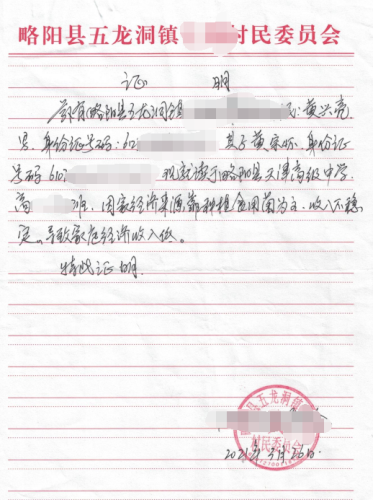 略阳县五龙洞镇 村民委员会
证 明
兹有略阳县五龙洞镇 民:黄兴亮
男,身份证号码:610 其子黄 身份证
号码 610 现就读于略阳县天津高级中学
高 班,因家经济来源靠种植食用菌为主,收入不稳
定。导致家庭经济收入低。
特此证明.
县五龙洞镇
村民委员会
2021年 月26日.